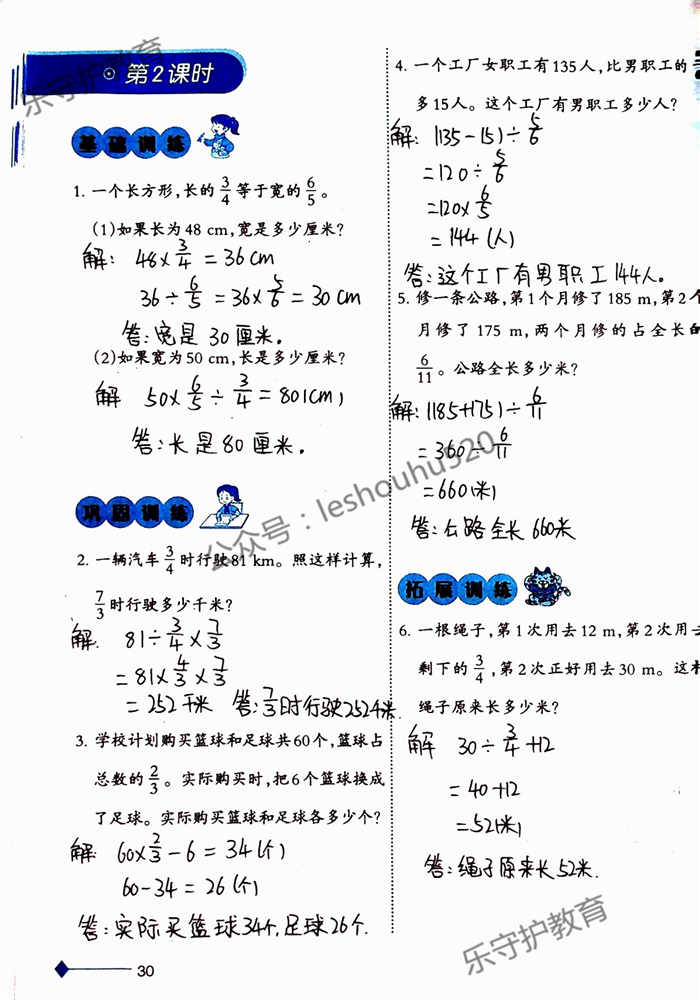 第2课时
基础训练
1. 一个长方形,长的 3/4 等于宽的 6/5 。
(1)如果长为 48 cm,宽是多少厘米?
解: 48×3/4=36cm
36÷6/5=36×5/6=30cm
答:宽是30厘米.
(2)如果宽为 50 cm,长是多少厘米?
解 50×6/5÷3/4=80(cm)
答:长是80厘米.
巩固训练
2. 一辆汽车 3/4 时行驶 81 km。照这样计算,
7/3 时行驶多少千米?
解: 81÷3/4×7/3
=81×4/3×7/3
=252千米 答:7/3时行驶252千米.
3. 学校计划购买篮球和足球共 60 个,篮球占
总数的 2/3 。实际购买时,把 6 个篮球换成
了足球。实际购买篮球和足球各多少个?
解: 60×2/3-6=34(个)
60-34=26(个)
答:实际买篮球34个,足球26个.
30
4. 一个工厂女职工有 135 人,比男职工的
多 15 人。这个工厂有男职工多少人?
解: (135-15)÷5/6
=120÷5/6
=120×6/5
=144(人)
答:这个工厂有男职工144人.
5. 修一条公路,第 1 个月修了 185 m,第 2 个
月修了 175 m,两个月修的占全长的
6/11 。公路全长多少米?
解:(185+175)÷6/11
=360÷6/11
=660(米)
答:公路全长660米
拓展训练
6. 一根绳子,第 1 次用去 12 m,第 2 次用去
剩下的 3/4 ,第 2 次正好用去 30 m。这根
绳子原来长多少米?
解 30÷3/4+12
=40+12
=52(米)
答:绳子原来长52米.
乐守护教育
公众号:leshouhu520
乐守护教育